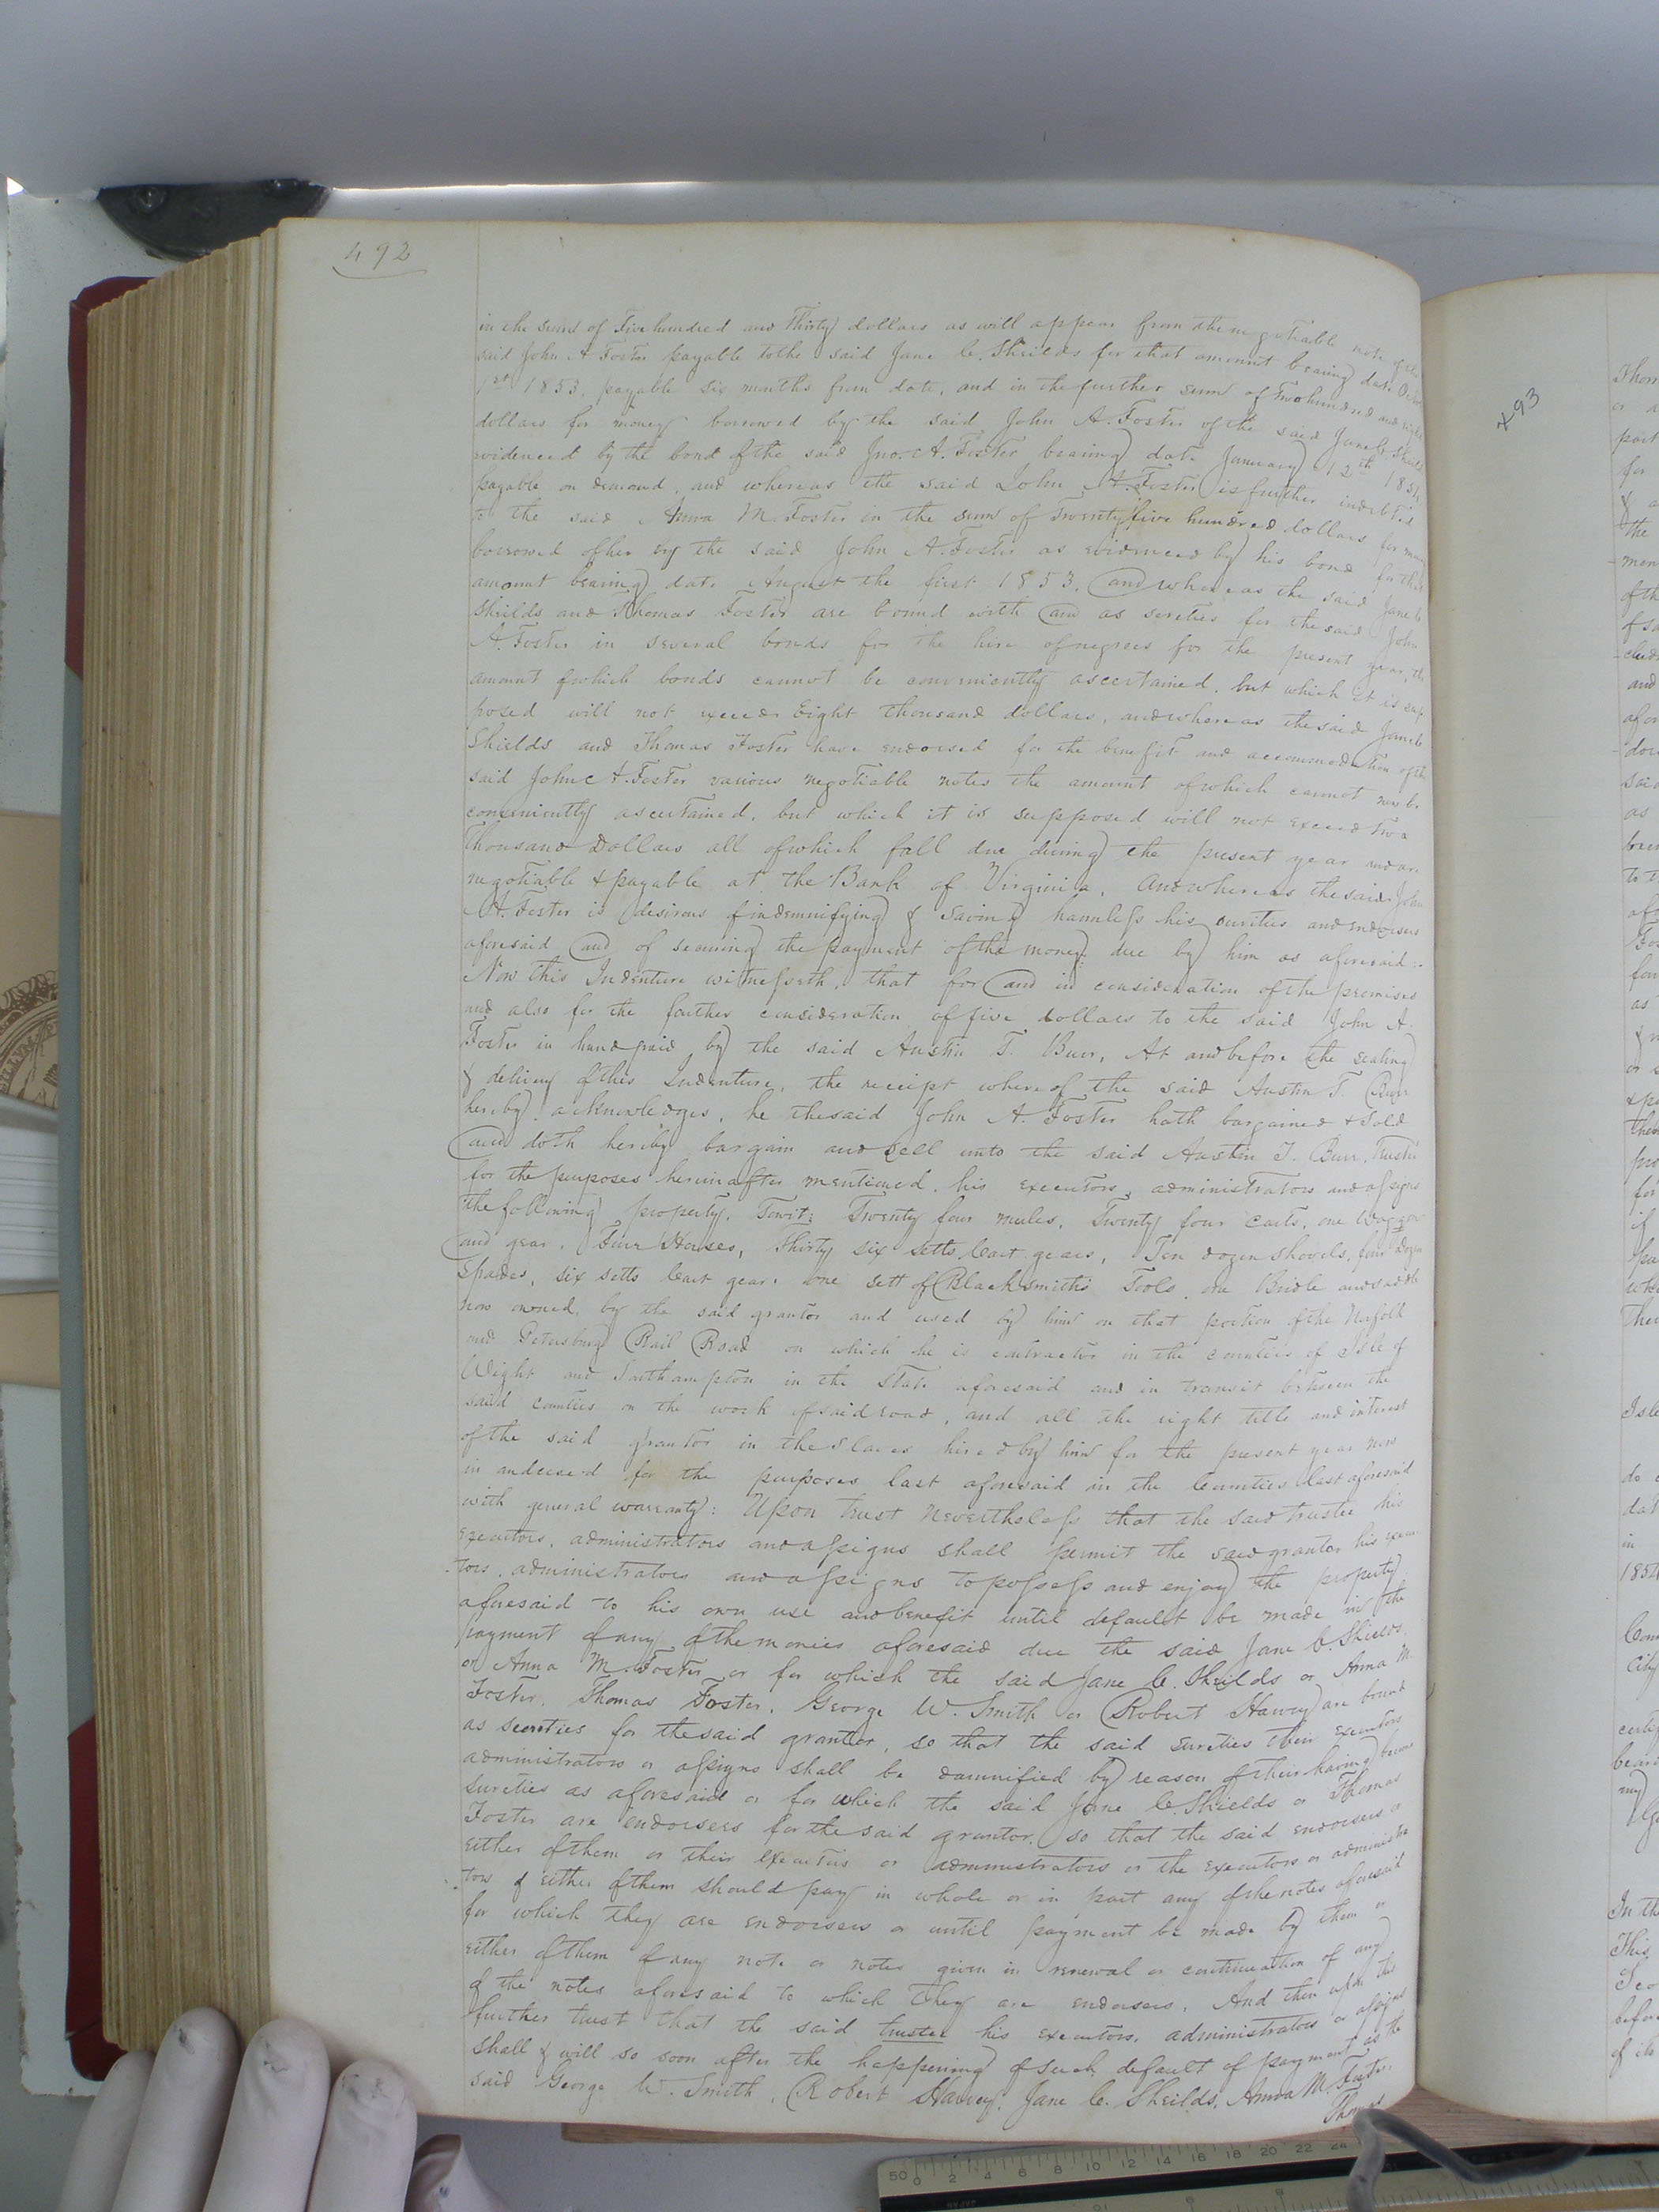 492
in the sum of Five hundred and Thirty dollars as will appear from the negotiable note of the
said John A Foster payable to the said Jane C. Sheilds for that amount bearing date
1st 1853, payable six months from date, and in the further sum of Two hundred and
dollars for money borrowed by the said John A. Foster of the said Jane C. Sheilds
evidenced by the bond of the said Jno. A. Foster bearing date January 12th 1854
payable on demand, and whereas the said John A. Foster is further indebted
to the said Anna M. Foster in the sum of Twenty five hundred dollars for money
borrowed of her by the said John A. Foster as evidenced by his bond for that
amount bearing date August the first 1853, and whereas the said Jane C
Shields and Thomas Foster are bound with and as sureties for the said John
A. Foster in several bonds for the hire of negroes for the present year, the
amount of which bonds cannot be conveniently ascertained, but which it is sup
posed will not exceed Eight thousand dollars, and whereas the said Jane C
Shields and Thomas Foster have endorsed for the benefit and accommodation of the
said John A. Foster various negotiable notes the amount of which cannot now be
conveniently ascertained, but which it is supposed will not exceed Two
Thousand Dollars all of which fall due during the present year and are
negotiable & payable at the Bank of Virginia. And whereas the said John
A. Foster is desirous of indemnifying & saving harmless his surities and endorsers
aforesaid and of securing the payment of the money due by him as aforesaid:
Now this Indenture witnesseth, that for and in consideration of the premises
and also for the further consideration of five dollars to the said John A.
Foster in hand paid by the said Austin T. Burr, At and before the sealing
& delivery of this Indenture, the receipt whereof the said Austin T. Burr
hereby acknowledges, he the said John A. Foster hath bargained & Sold
and doth hereby bargain and sell unto the said Austin T. Burr, Trustee
for the purposes herein after mentioned, his executors, administrators and assigns
the following property. Towit: Twenty four mules, Twenty four carts, one Waggon
and gear. Four Horses, Thirty six setts Cart gears, Ten dozen Shovels, four dozen
Spades, six setts Cart gear. one sett of Blacksmiths Tools, one Bridle and saddle
now owned, by the said grantor and used by him on that portion of the Norfolk
and Petersburg Rail Road on which he is contractor in the counties of Isle of
Wight and Southampton in the State aforesaid and in transit between the
said counties on the work of said road, and all the right title and interest
of the said grantor in the slaves hired by him for the present year now
in and used for the purposes last aforesaid in the Counties last aforesaid
with general warranty: Upon trust Nevertheless that the said trustee his
executors, administrators and assigns shall permit the said grantor his execu
-tors, administrators and assigns to possess and enjoy the property
aforesaid to his own use and benefit until default be made in the
payment of any of the monies aforesaid due the said Jane C. Shields.
or Anna M. Foster or for which the said Jane C. Sheilds or Anna M.
Foster, Thomas Foster, George W. Smith or Robert Harvey are bound
as secreties for the said grantor, so that the said sureties their executors
administrators or assigns shall be damnified by reason of their having become
sureties as aforesaid or for which the said Jane C. Shields or Thomas
Foster are endorsers for the said grantor. so that the said endorsers or
either of them or their executors or administrators or the executors or administra
-tors of either of them should pay in whole or in part any of the notes aforesaid
for which they are endorsers or until payment be made by them or
either of them of any note or notes given in renewal or continuation of any
of the notes aforesaid to which they are endorsers. And then upon this
further trust that the said trustee his executors, administrators or assigns
shall & will so soon after the happening of such default of payment as the
said George W. Smith, Robert Harvey, Jane C. Sheilds, Anna M. Foster
Thomas
493
Isle
1854
City
In the
This